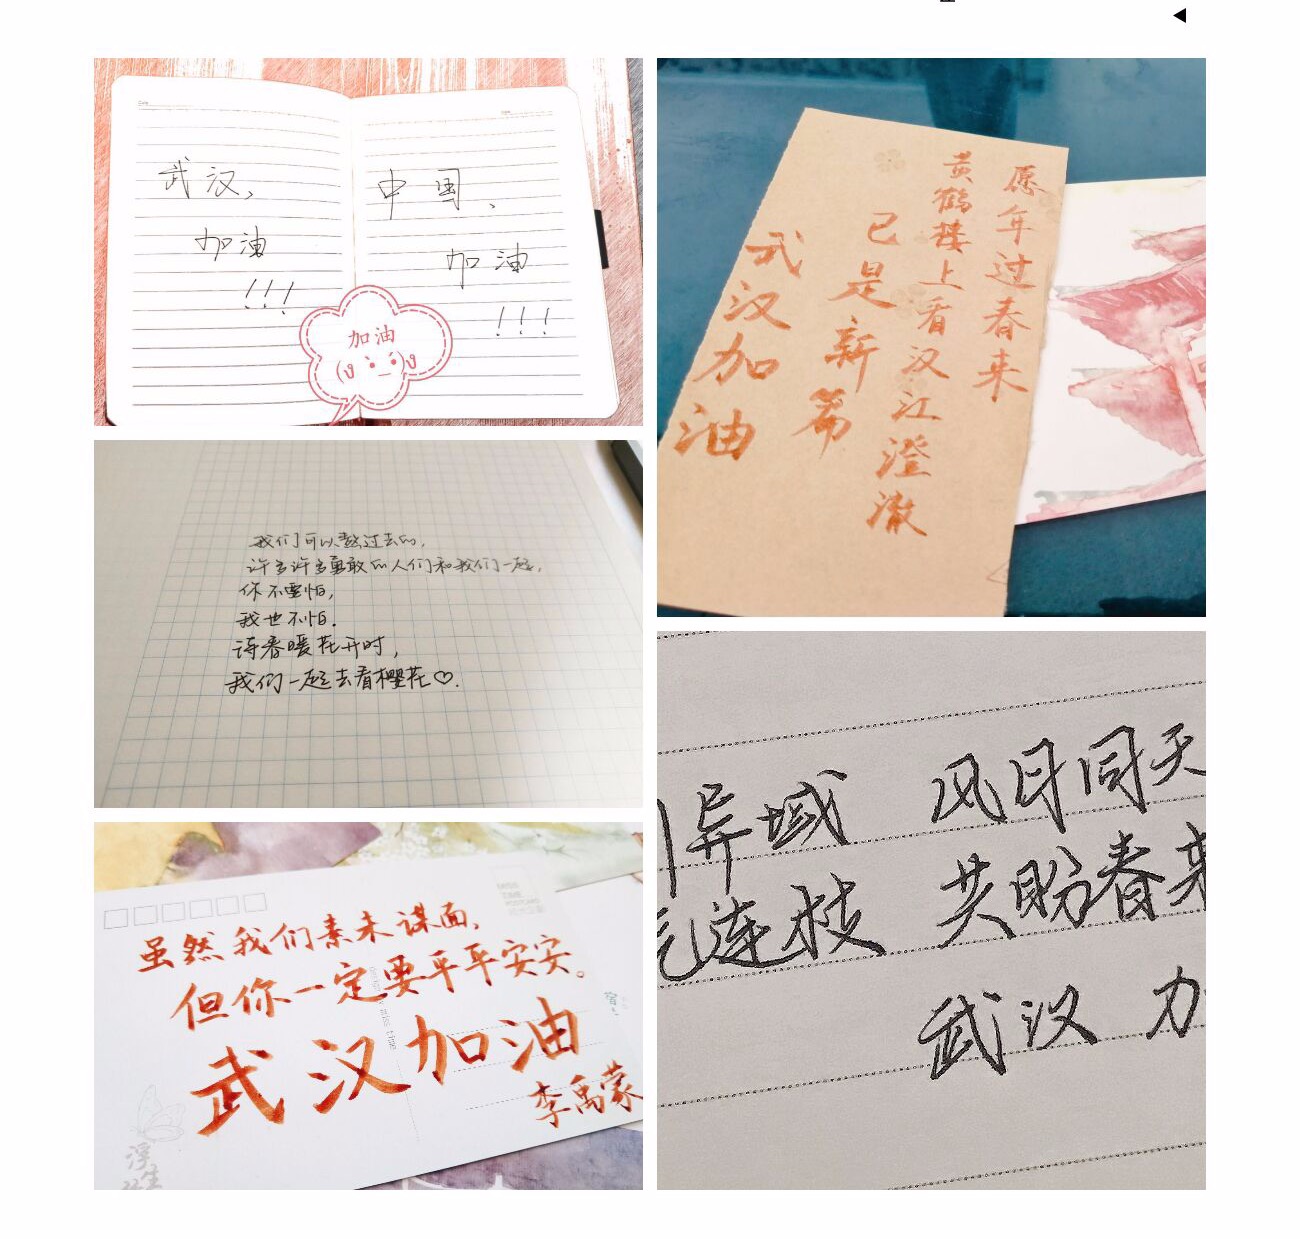 武汉,
加油
!!!
中国、
加油
!!!
加油
愿年过春来
黄鹤楼上看汉江澄澈
已是新篇
武汉加油
我们可以熬过去的,
许多许多勇敢的人们和我们一起,
你不要怕,
我也不怕.
待春暖花开时,
我们一起去看樱花♡.
虽然我们素未谋面,
但你一定要平平安安。
武汉加油
李禹蒙
浮生
异域 风月同天
连枝 共盼春来
武汉